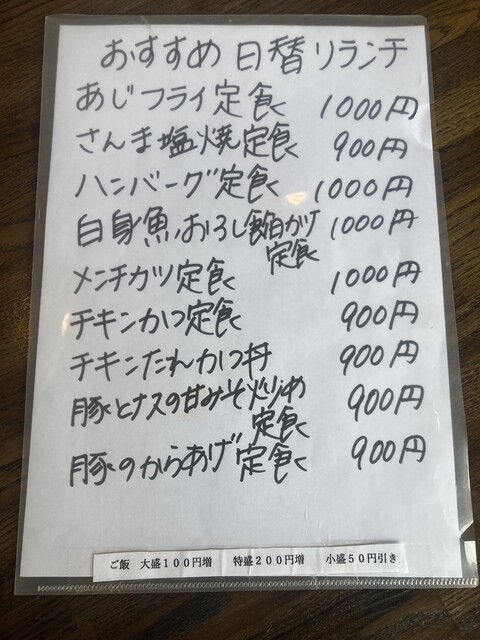 おすすめ 日替りランチ
あじフライ定食 1000円
さんま塩焼定食 900円
ハンバーグ定食 1000円
白身魚おろし餡かけ 1000円
定食
メンチカツ定食 1000円
チキンかつ定食 900円
チキンたれかつ丼 900円
豚とナスの甘みそ炒め 900円
定食
豚のからあげ定食 900円
ご飯 大盛100円増 特盛200円増 小盛50円引き